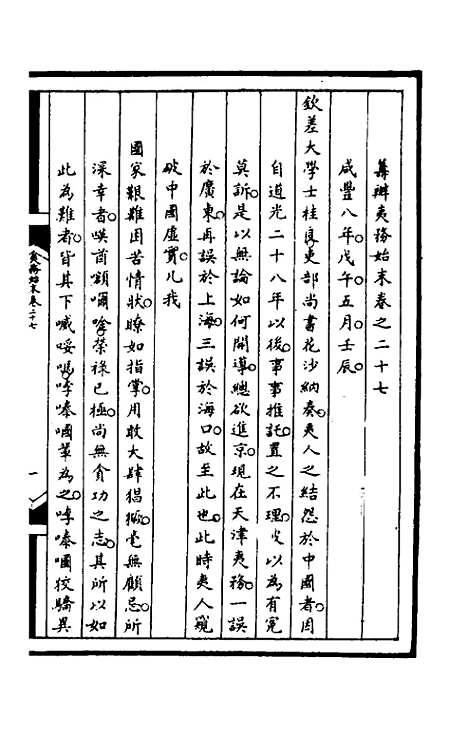 籌辦夷務始末卷之二十七
咸豐八年戊午五月壬辰
欽差大學士桂良吏部尚書花沙納奏夷人之結怨於中國者因
自道光二十八年以後事事推託置之不理以為有冤
莫訴是以無論如何開導總欲進京現在天津夷務一誤
於廣東再誤於上海三誤於海口故至此也此時夷人窺
破中國虛實凡我
國家艱難困苦情狀瞭如指掌用敢大肆猖獗毫無顧忌所
深幸者㗆酋額爾唫榮祿已極尚無貪功之志其所以如
此為難者皆其下嘁哸嗎㖓嗪嘓輩為之㖓嗪嘓狡驕異
夷務始末卷二十七
一